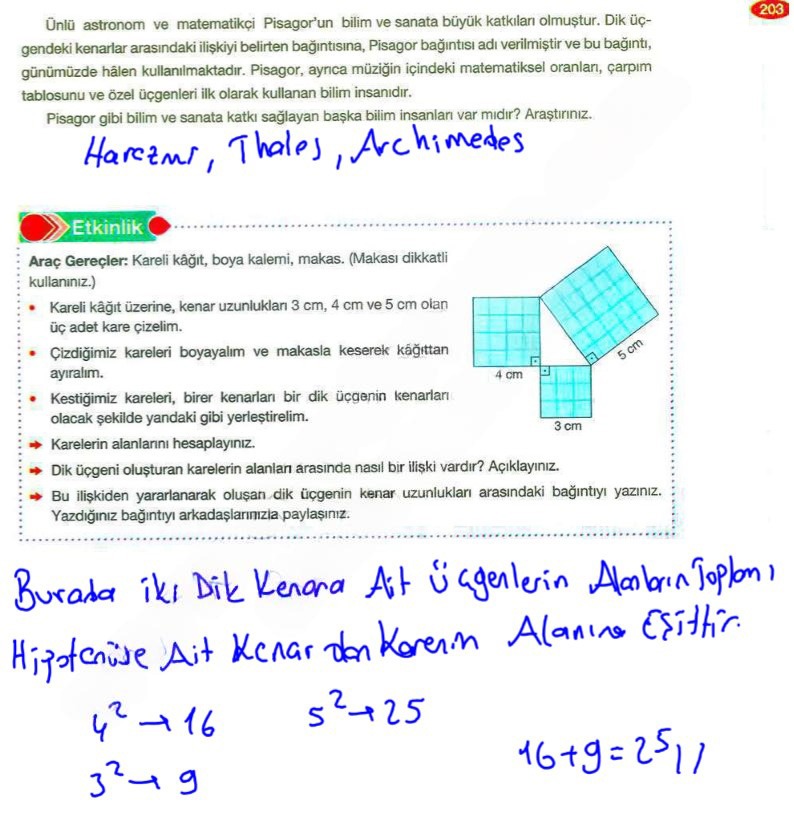 203
Ünlü astronom ve matematikçi Pisagor'un bilim ve sanata büyük katkıları olmuştur. Dik üç-
gendeki kenarlar arasındaki ilişkiyi belirten bağıntısına, Pisagor bağıntısı adı verilmiştir ve bu bağıntı,
günümüzde hâlen kullanılmaktadır. Pisagor, ayrıca müziğin içindeki matematiksel oranları, çarpım
tablosunu ve özel üçgenleri ilk olarak kullanan bilim insanıdır.
Pisagor gibi bilim ve sanata katkı sağlayan başka bilim insanları var mıdır? Araştırınız.
Harezmi, Thales, Archimedes
Etkinlik
Araç Gereçler: Kareli kâğıt, boya kalemi, makas. (Makası dikkatli
kullanınız.)
• Kareli kâğıt üzerine, kenar uzunlukları 3 cm, 4 cm ve 5 cm olan
üç adet kare çizelim.
• Çizdiğimiz kareleri boyayalım ve makasla keserek kâğıttan
ayıralım.
• Kestiğimiz kareleri, birer kenarları bir dik üçgenin kenarları
olacak şekilde yandaki gibi yerleştirelim.
4 cm
5 cm
3 cm
➡ Karelerin alanlarını hesaplayınız.
➡ Dik üçgeni oluşturan karelerin alanları arasında nasıl bir ilişki vardır? Açıklayınız.
➡ Bu ilişkiden yararlanarak oluşan dik üçgenin kenar uzunlukları arasındaki bağıntıyı yazınız.
Yazdığınız bağıntıyı arkadaşlarınızla paylaşınız.
Burada iki Dik Kenara Ait Üçgenlerin Alanların Toplamı
Hipotenüse Ait Kenardan Karenin Alanına Eşittir.
4² → 16 5² → 25
3² → 9 16+9=25//